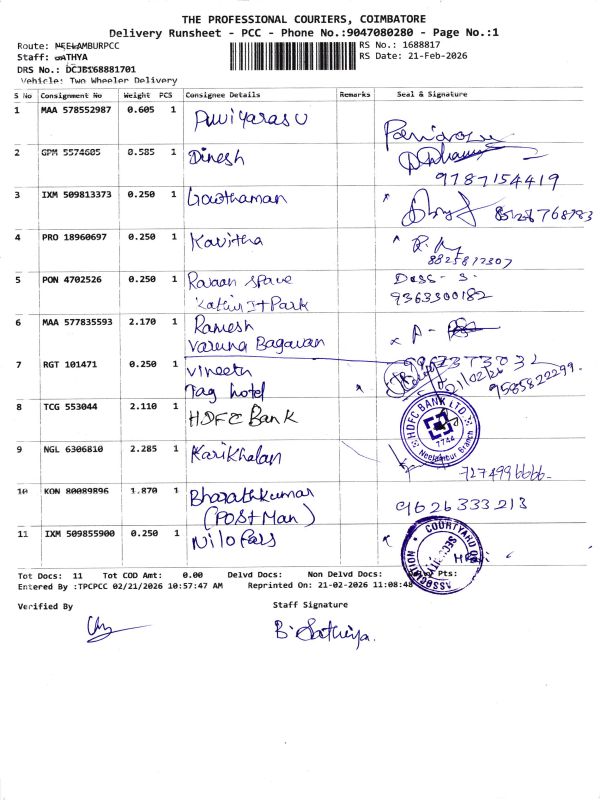 THE PROFESSIONAL COURIERS, COIMBATORE
Delivery Runsheet - PCC - Phone No.:9047080280 - Page No.:1
Route: NEELAMBURPCC
RS No.: 1688817
Staff: SATHYA
RS Date: 21-Feb-2026
DRS No.: DCJB168881701
Vehicle: Two Wheeler Delivery
S No Consignment No Weight PCS Consignee Details Remarks Seal & Signature
1 MAA 578552987 0.605 1 Puviyarasu
2 GPM 5574605 0.585 1 Dinesh
9787154419
3 IXM 509813373 0.250 1 Gowthaman
4 PRO 18960697 0.250 1 Kavitha
8825817307
5 PON 4702526 0.250 1 Ravaan space Dass - S.
Kathir It Park 9363300182
6 MAA 577835593 2.170 1 Ramesh
Varuna Bagavan
7 RGT 101471 0.250 1 Vineeth
Tag hotel 21/02/26 9585822299.
8 TCG 553044 2.110 1 HDFC Bank HDFC BANK LTD. 7744 Neelambur Branch
9 NGL 6306810 2.285 1 Karikhalan
7274996666.
10 KON 80089896 1.870 1 Bharathkumar 9626333213
(Post Man)
11 IXM 509855900 0.250 1 Nilofars COURTYARD SECURITY ASSOCIATION
Tot Docs: 11 Tot COD Amt: 0.00 Delvd Docs: Non Delvd Docs: Pts:
Entered By :TPCPCC 02/21/2026 10:57:47 AM Reprinted On: 21-02-2026 11:08:48
Verified By Staff Signature
B. Sathiya.